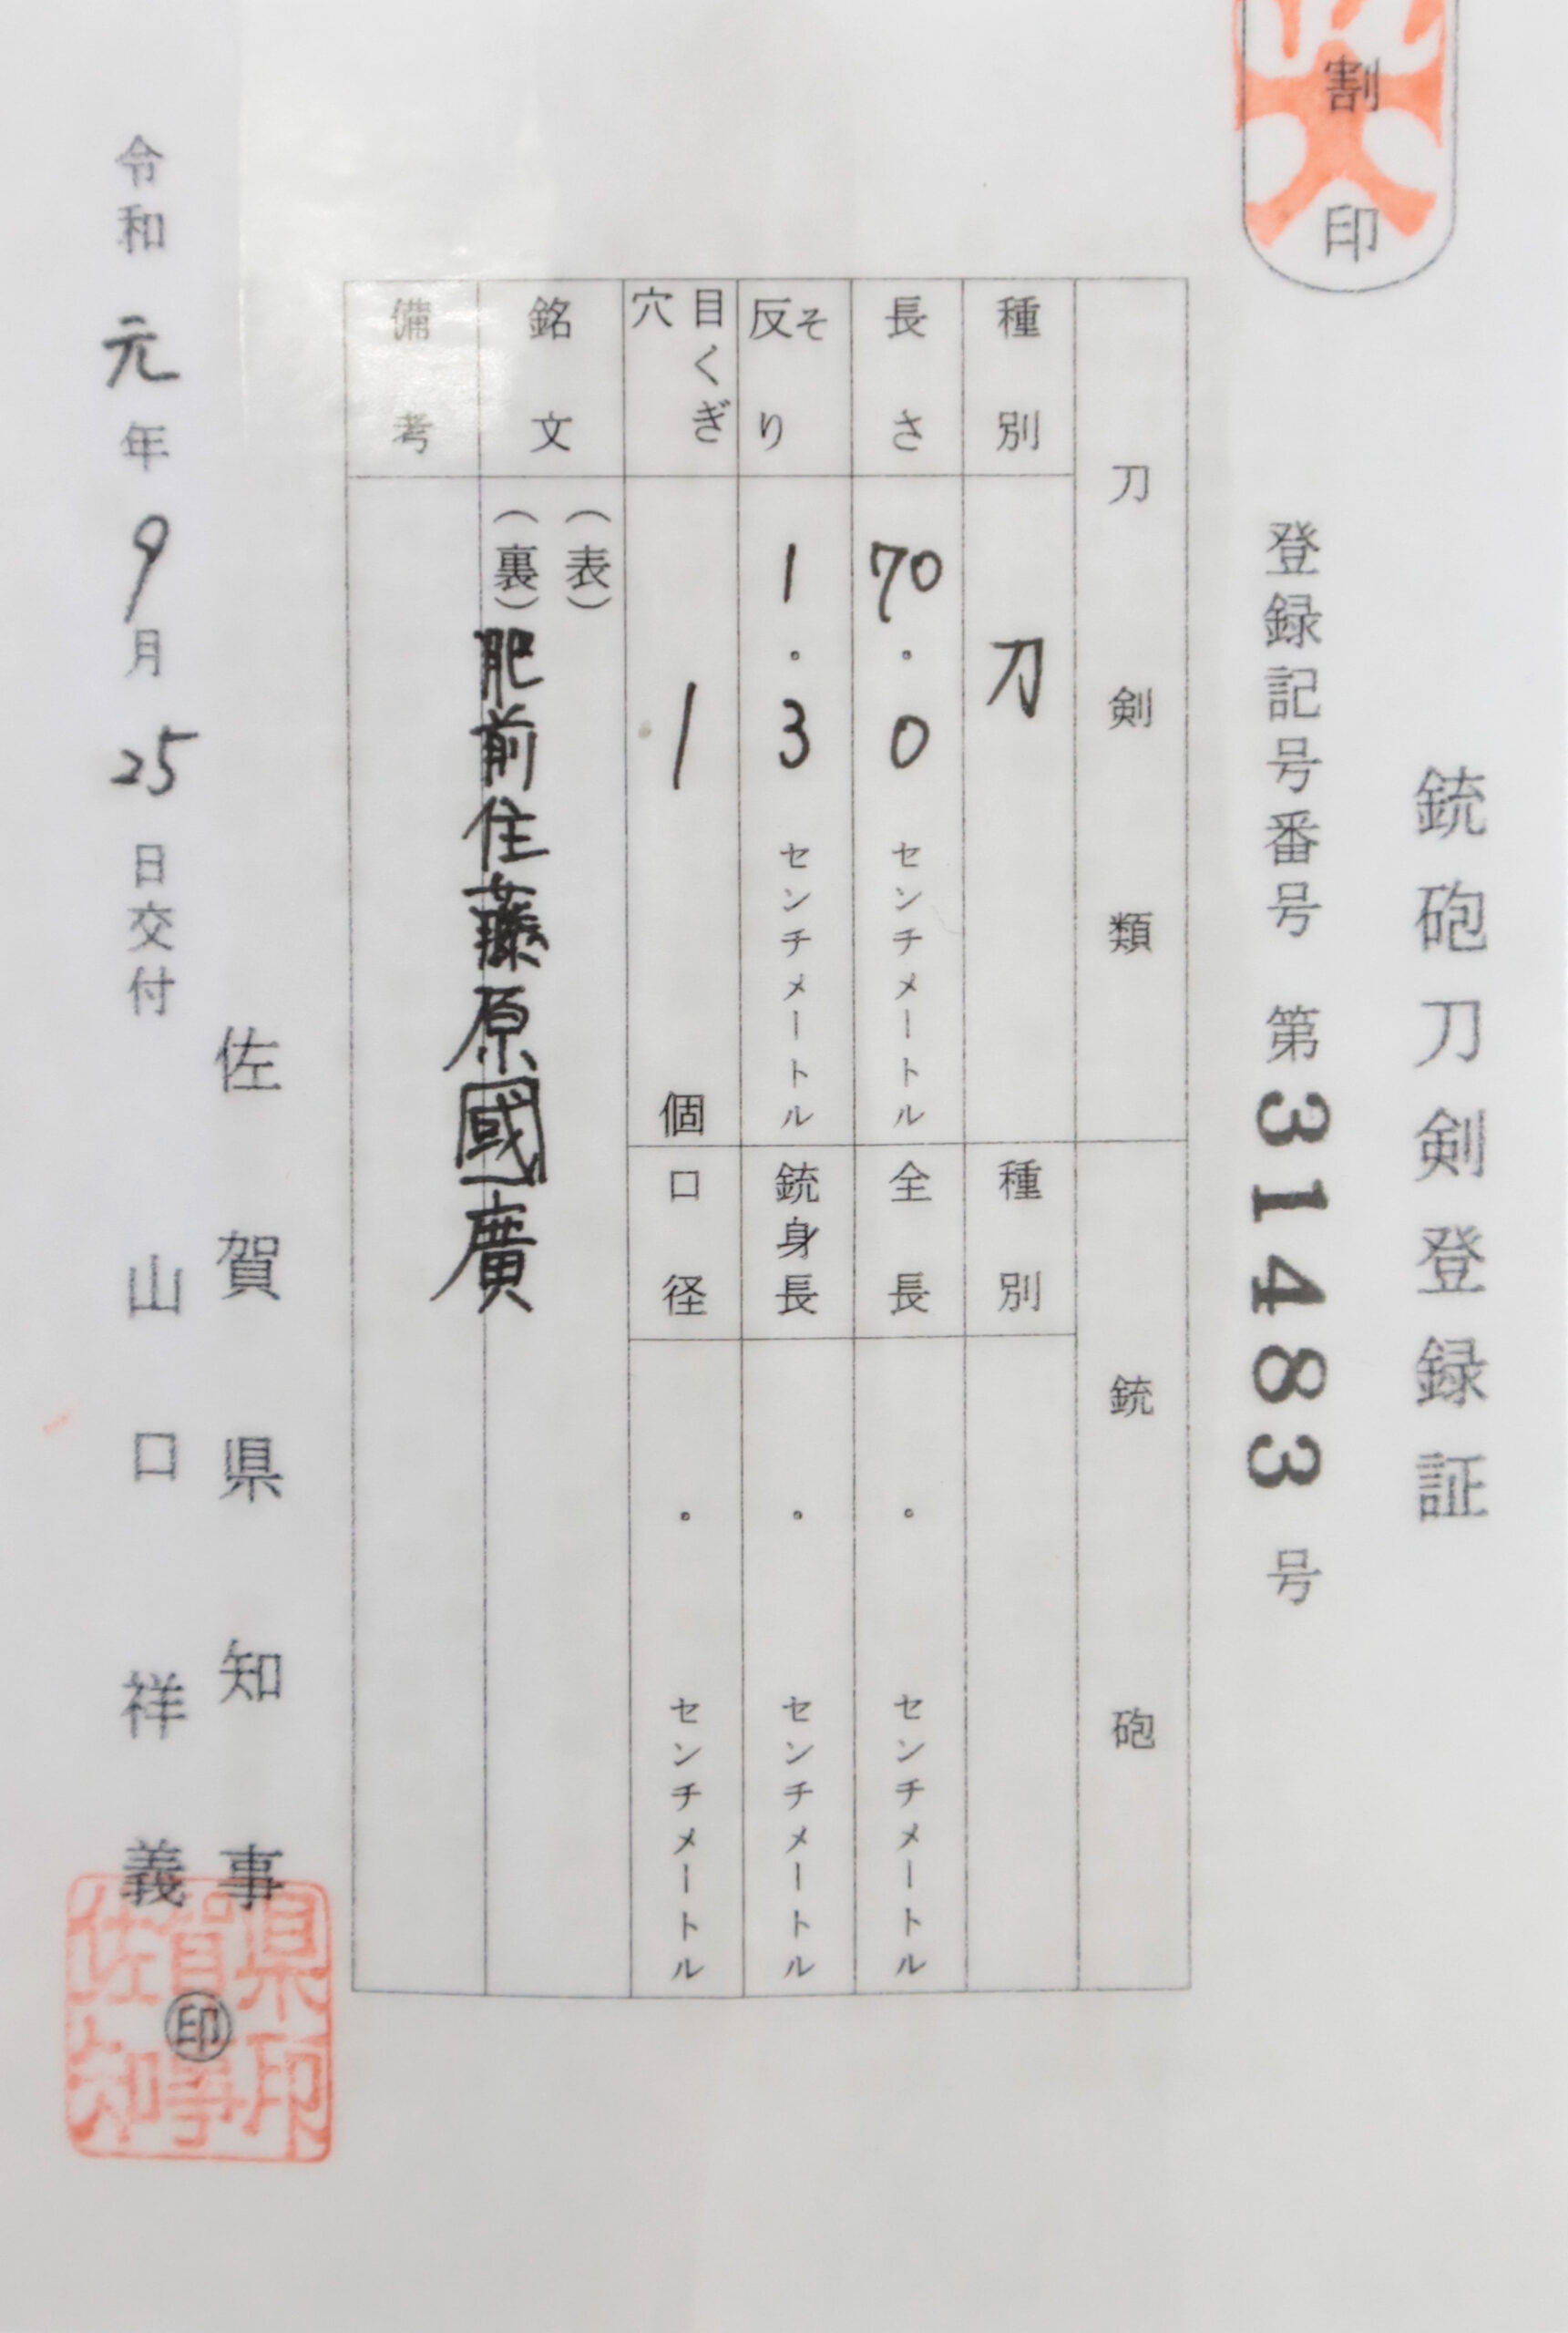 銃砲刀剣登録証
割印
登録記号番号 第31483号
刀剣類
種別 刀
長さ 70.0センチメートル
反り そ 1.3センチメートル
目くぎ穴 1個
銘文 (表)
(裏)肥前住藤原國廣
備考
銃砲
種別
全長 .センチメートル
銃身長 .センチメートル
口径 .センチメートル
佐賀県知事
山口祥義 印
県印賀事佐知
令和元年9月25日交付